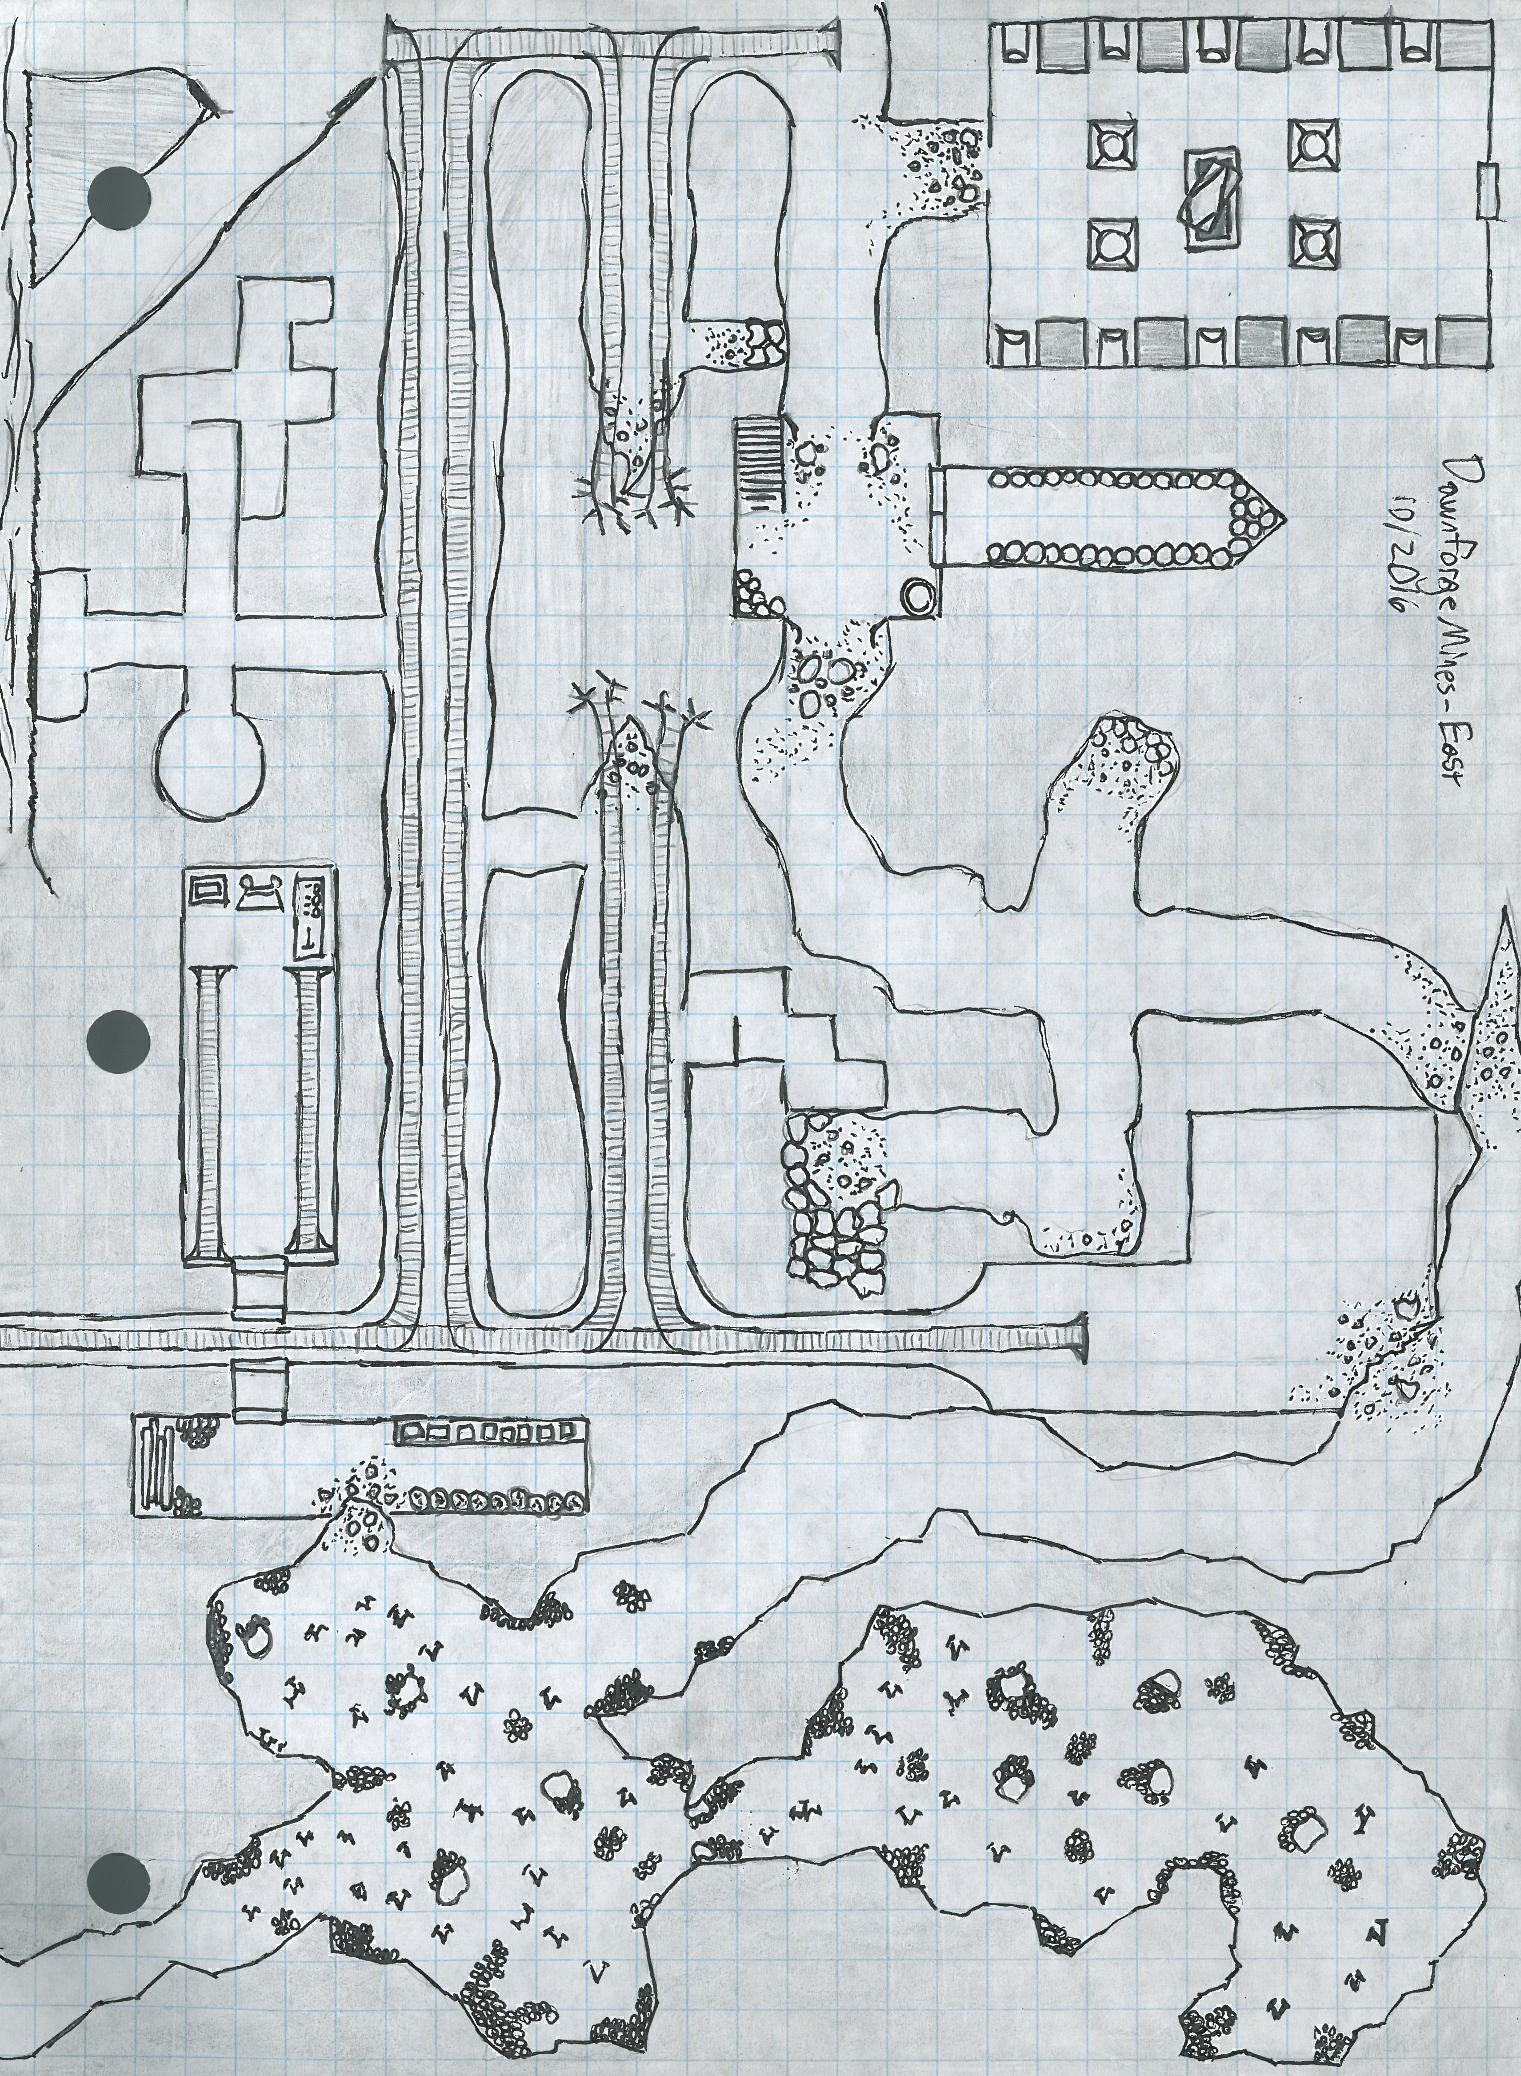 Dawnforge Mines - East
10/2016